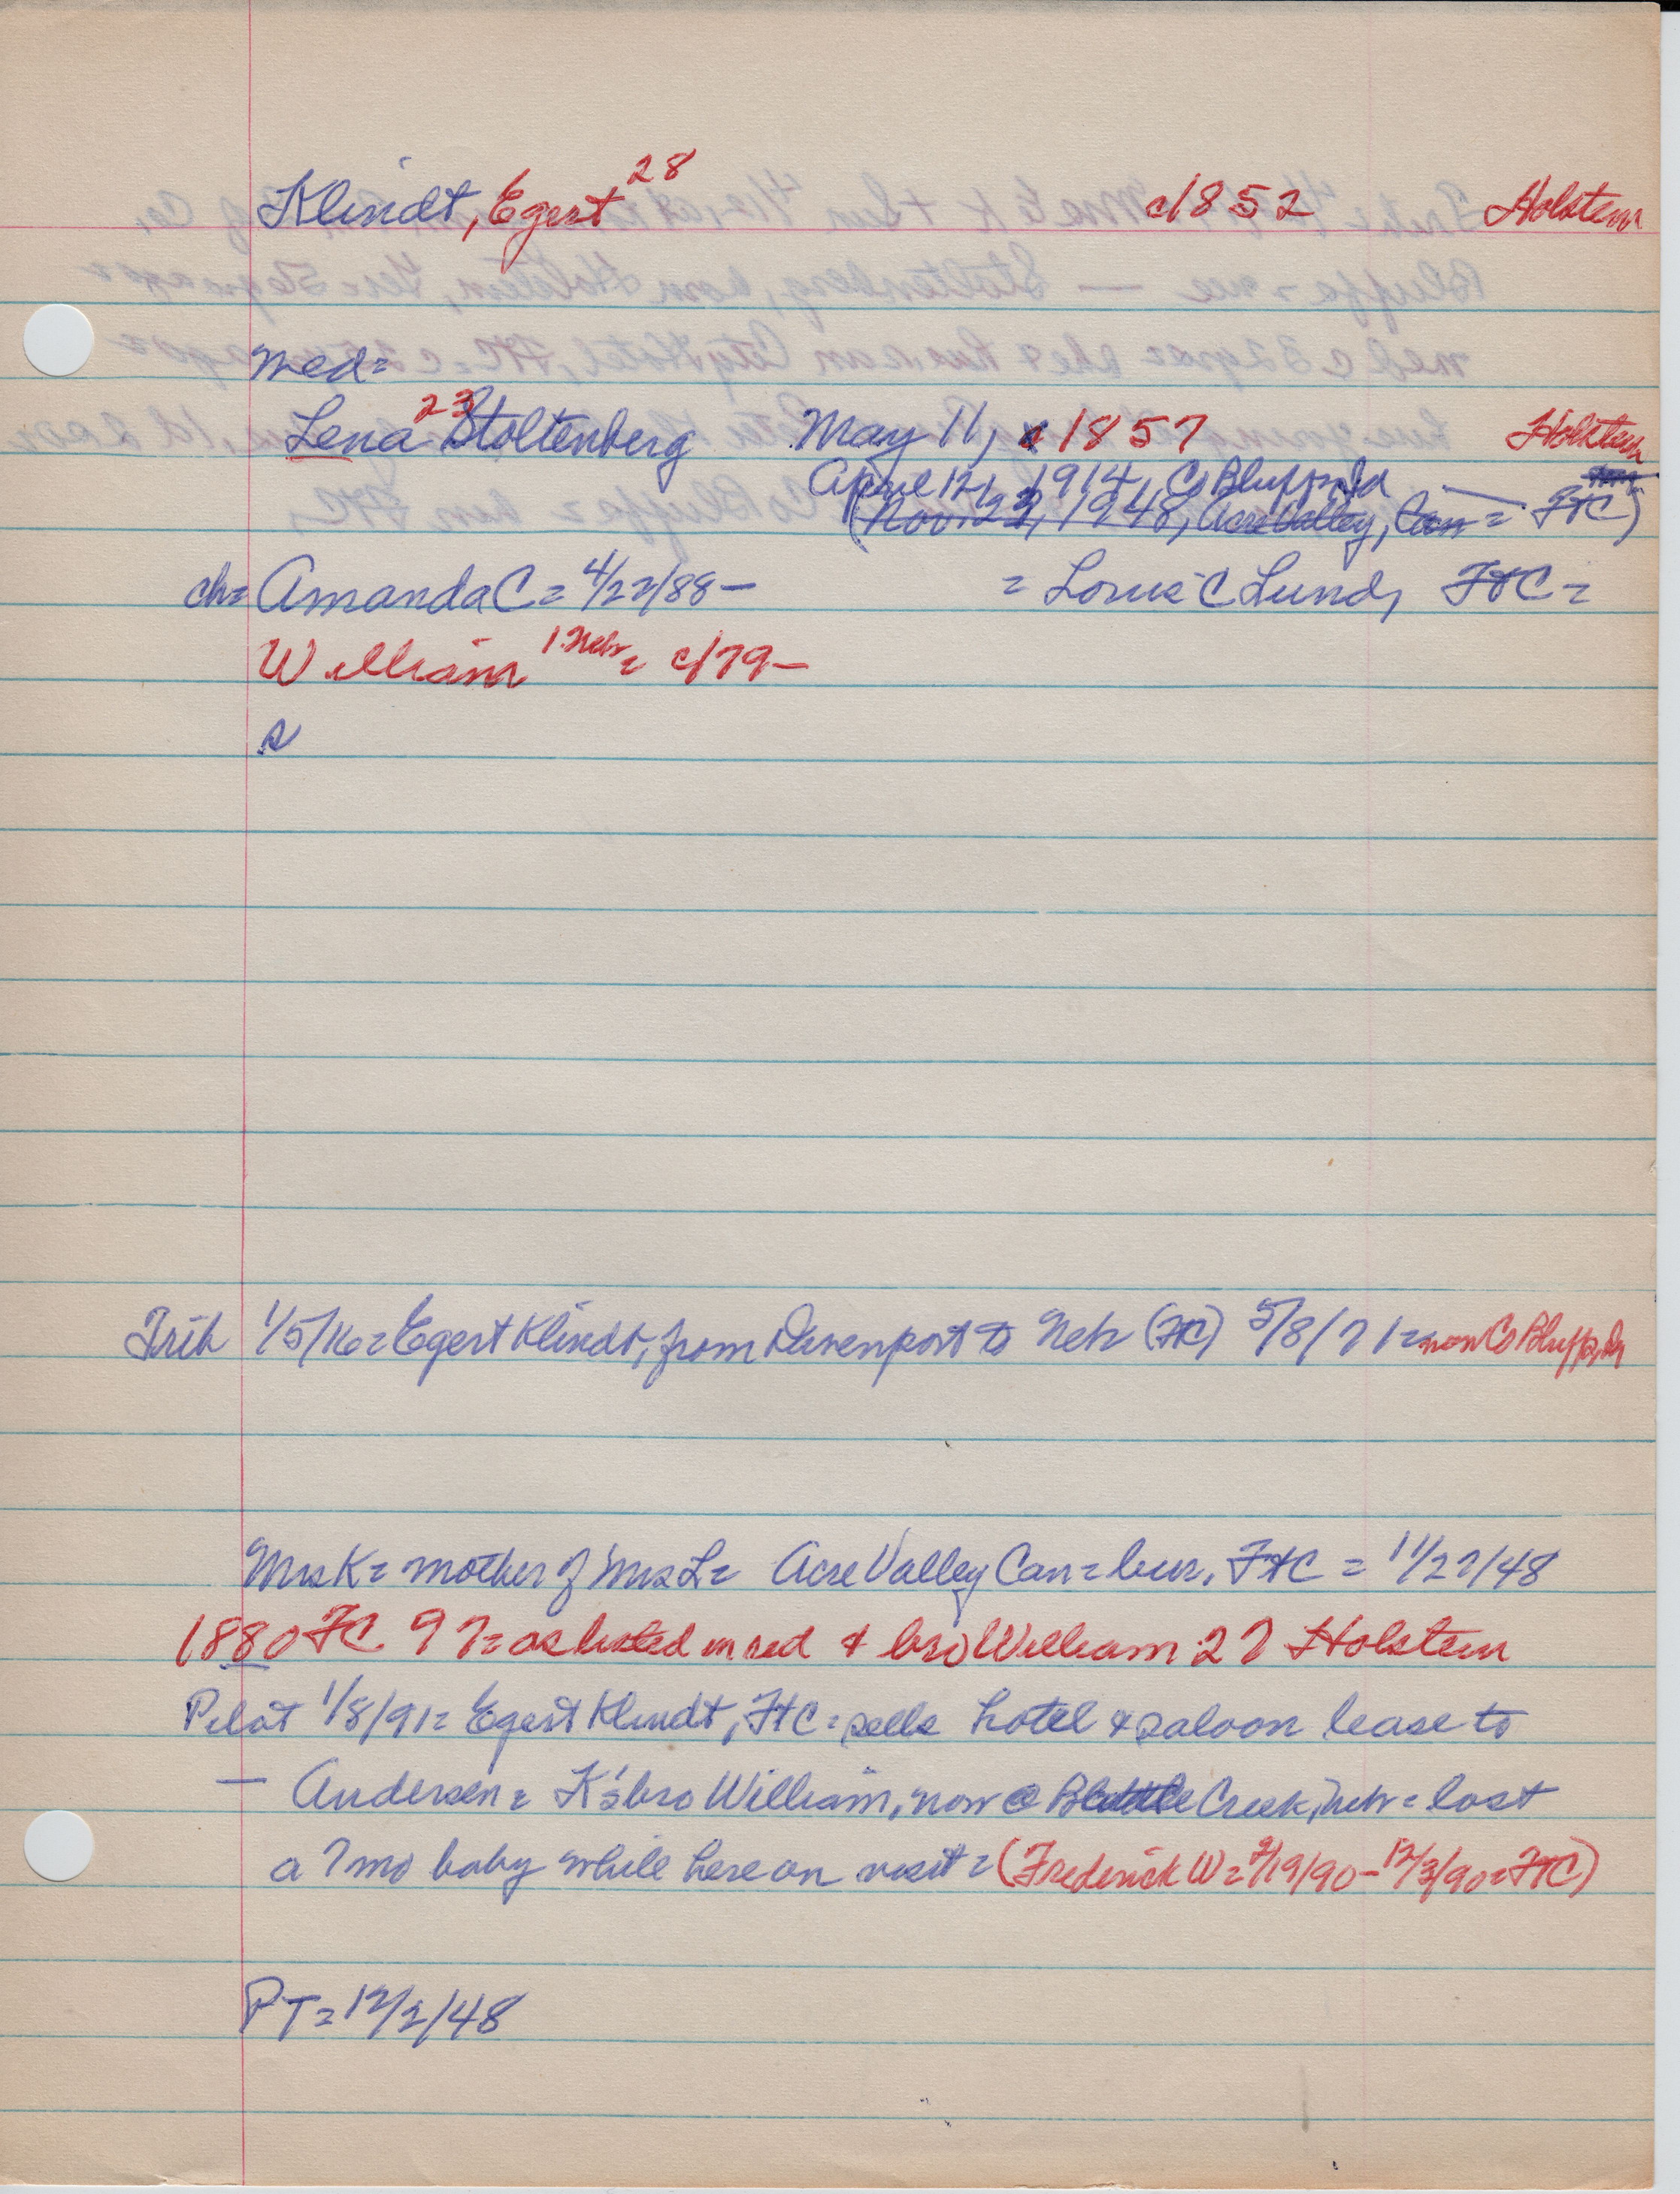 Klindt, Egert 28 c/1852 Holstein
med=
Lena 23 Stoltenberg May 11, c1857 Holstein
April 12, 1914, Co Bluffs, Ia
(Nov. 22, 1948, Acre Valley, Can = FtC)
ch= Amanda C = 4/22/88 — = Louis C Lund, FtC =
William 1. Nebr = c/79 —
Trib 1/5/16 = Egert Klindt, from Davenport to Neb (FC) 5/8/71 = now Co Bluffs, Ia
Mrs K = mother of Mrs L = Acre Valley Can = bur. FtC = 11/27/48
1880 FC 97 = as listed in red & bro William 27 Holstein
Pilot 1/8/91 = Egert Klindt, FtC = sells hotel & saloon lease to
— Andersen = K's bro William, now @ Battle Creek, Neb = lost
a 7 mo baby while here on visit = (Frederick W = 9/19/90 - 12/3/90 = FtC)
PT = 12/2/48